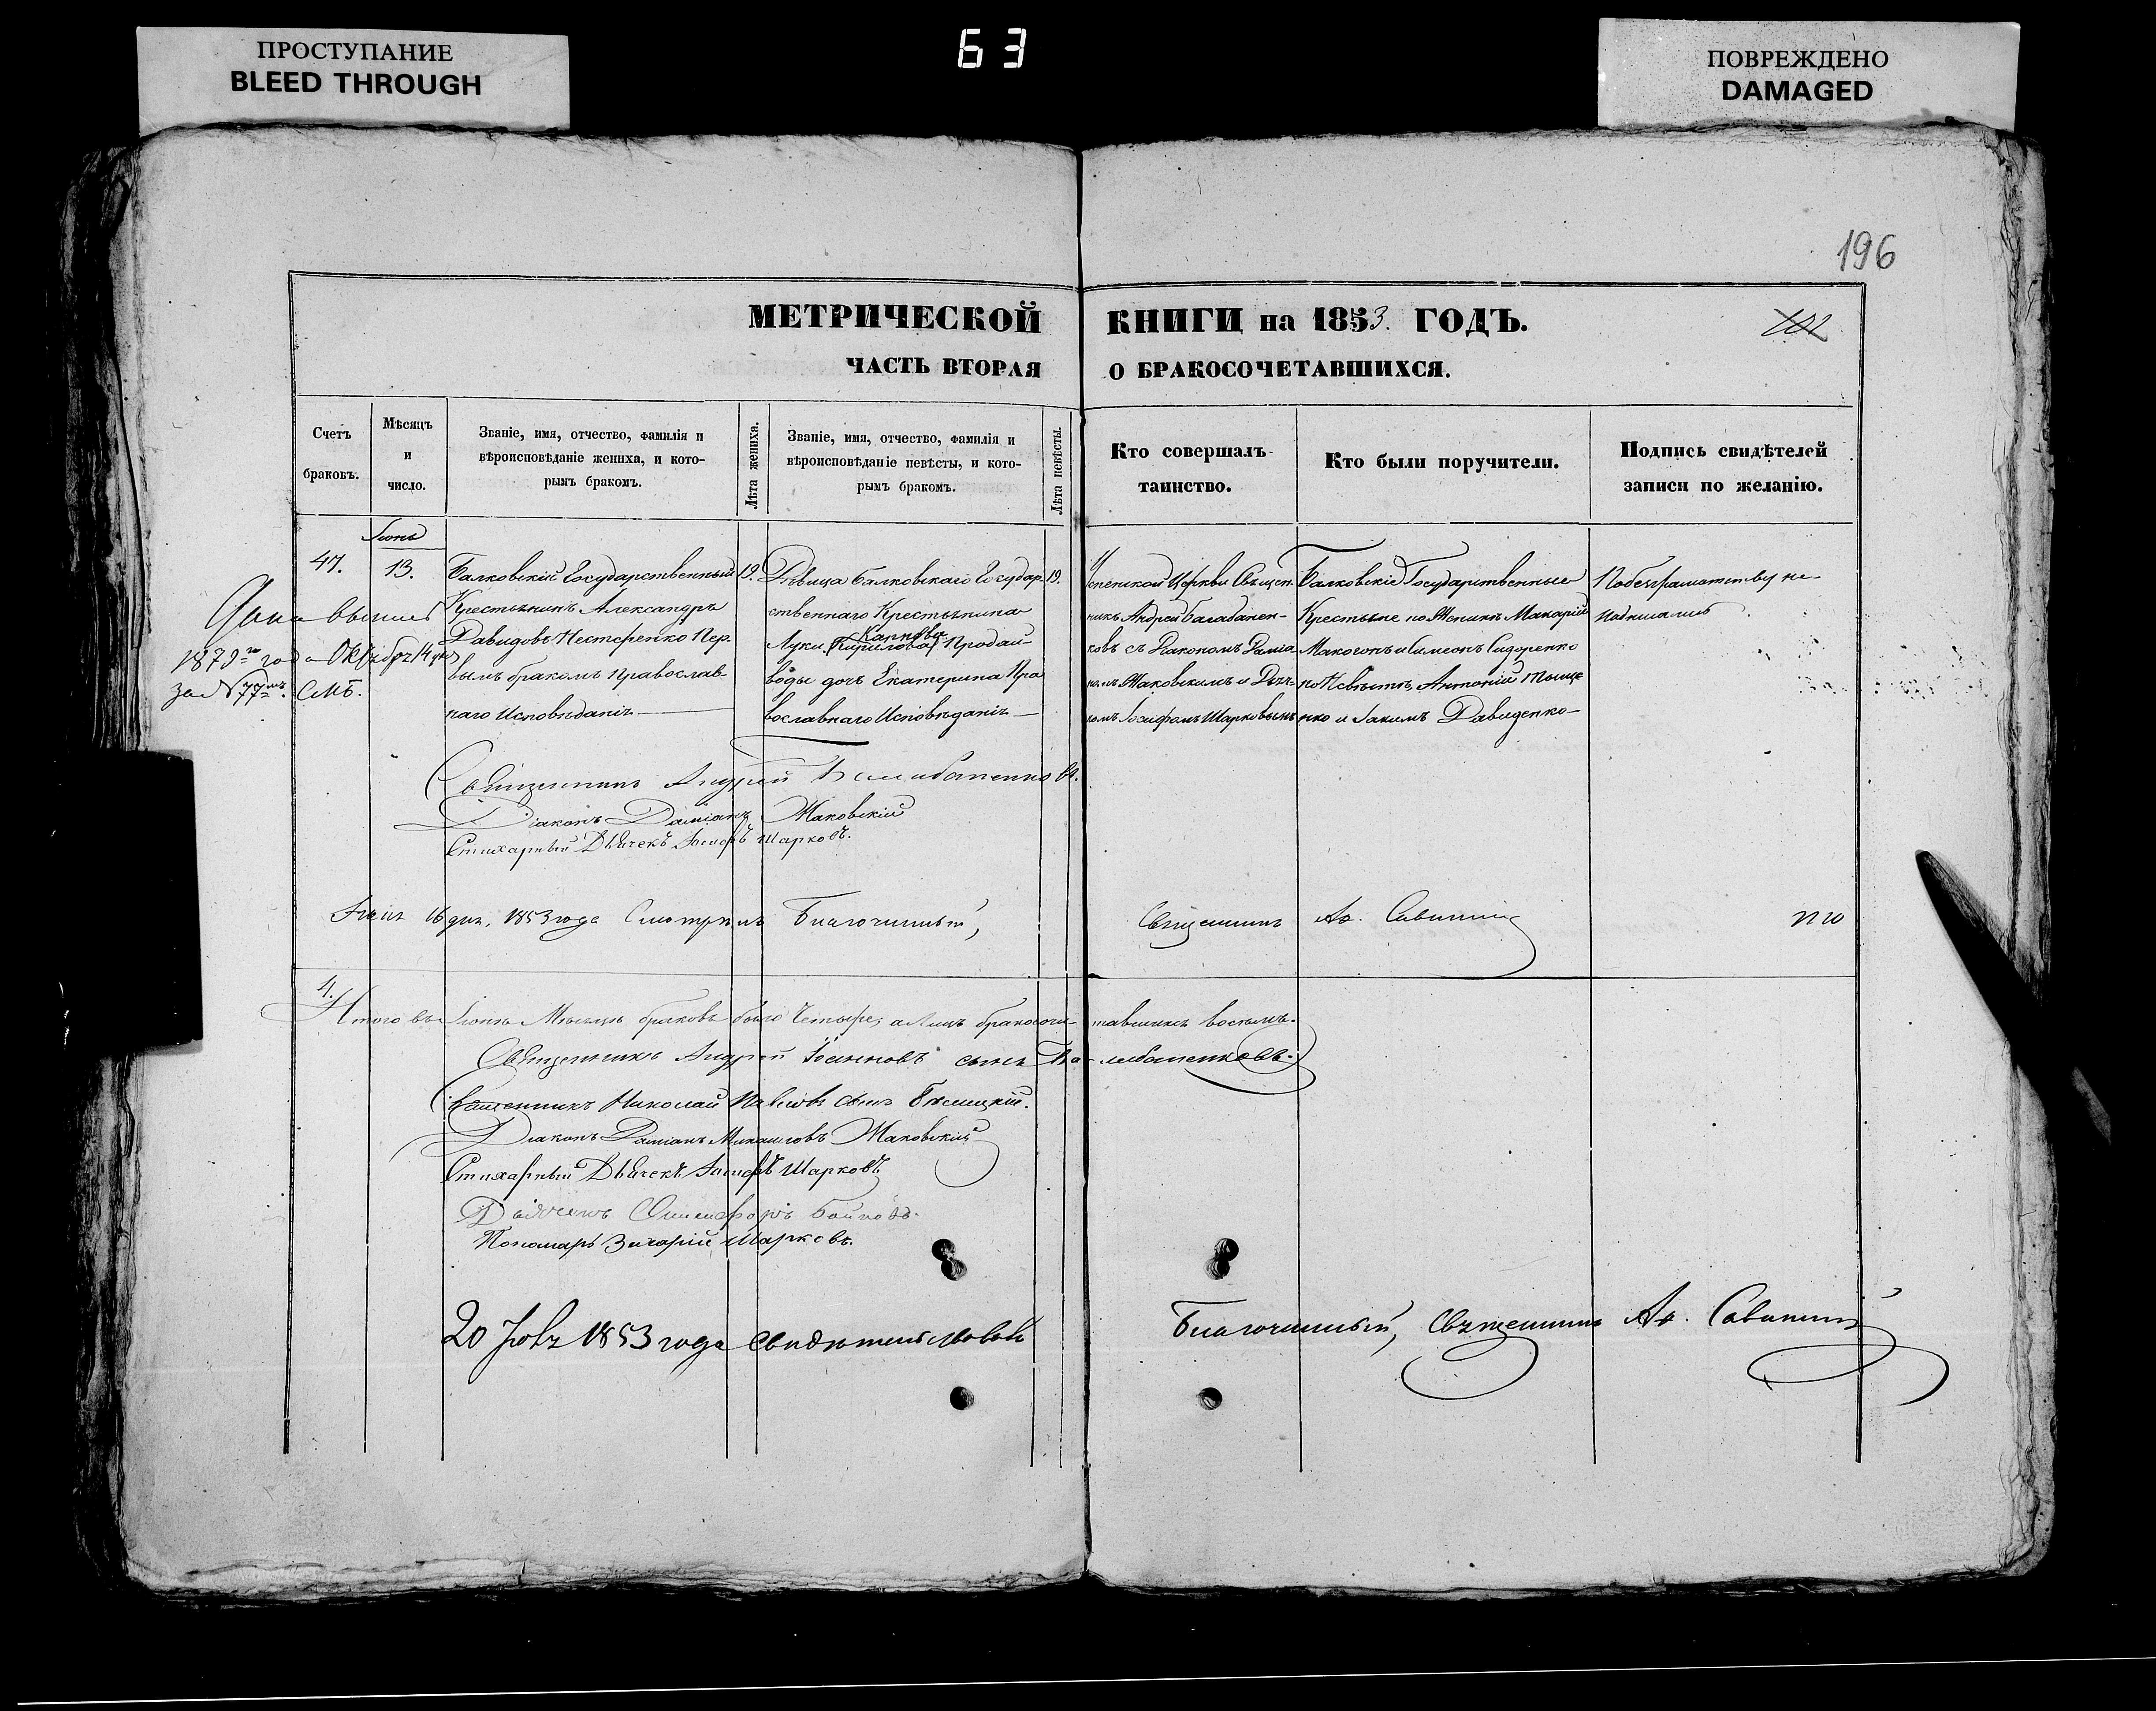 ПРОСТУПАНИЕ
BLEED THROUGH
63
ПОВРЕЖДЕНО
DAMAGED
196
МЕТРИЧЕСКОЙ КНИГИ на 1853. ГОДЪ.
ЧАСТЬ ВТОРАЯ О БРАКОСОЧЕТАВШИХСЯ.
Счетъ
браковъ.
Мѣсяцъ
и
число.
Званіе, имя, отчество, фамилія и
вѣроисповѣданіе жениха, и кото-
рымъ бракомъ.
Лѣта жениха.
Званіе, имя, отчество, фамилія и
вѣроисповѣданіе невѣсты, и кото-
рымъ бракомъ.
Лѣта невѣсты.
Кто совершалъ
таинство.
Кто были поручители.
Подпись свидѣтелей
записи по желанію.
47.
Іюнь
13.
Балковскій Государственный
Крестьянинъ Александръ
Давидовъ Нестеренко пер-
вымъ бракомъ православ-
наго Исповѣданія
19.
Дѣвица Балковскаго Государ-
ственнаго Крестьянина
Луки Карпова
Кирилова Продай-
воды дочь Екатерина Пра
вославнаго Исповѣданія
19.
Успенской Церкви Священ-
никъ Андрей Балабанен-
ковъ съ Діакономъ Даміа
номъ Маковскимъ и Дьяч-
комъ Іосифомъ Шарковымъ
Балковскіе Государственные
Крестьяне по Женихѣ Макарій
Макогонъ и Симеонъ Сидоренко
по Невѣстѣ, Антоній Тыще
нко и Іакимъ Давиденко
По безграмотству не-
подписались
Дана выпись
1879го года Октября 14 дня
за № 77мъ. СМѢ.
Священникъ Андрей Балабаненковъ.
Діаконъ Даміанъ Маковскій
Стихарный Дьячекъ Іосифъ Шарковъ.
16 дня, 1853 года Смотрѣлъ Благочинный, Священникъ Ав. Савинскій
4.
Итого въ Іюнѣ Мѣсяцѣ браковъ было Четыре; а Лицъ бракосоче-тавшихся восемь.
Священникъ Андрей Іоанновъ сынъ Ба-лабаненковъ.
Священникъ Николай Павловъ сынъ
Діаконъ Даміанъ Михаиловъ Маковскій
Стихарный Дьячекъ Іосифъ Шарковъ
Дьячекъ Онисифоръ Бойковъ.
Пономарь Захарій Шарковъ.
20 1853 года Свидѣтельствовалъ Благочинный, Священникъ Ав. Савинскій